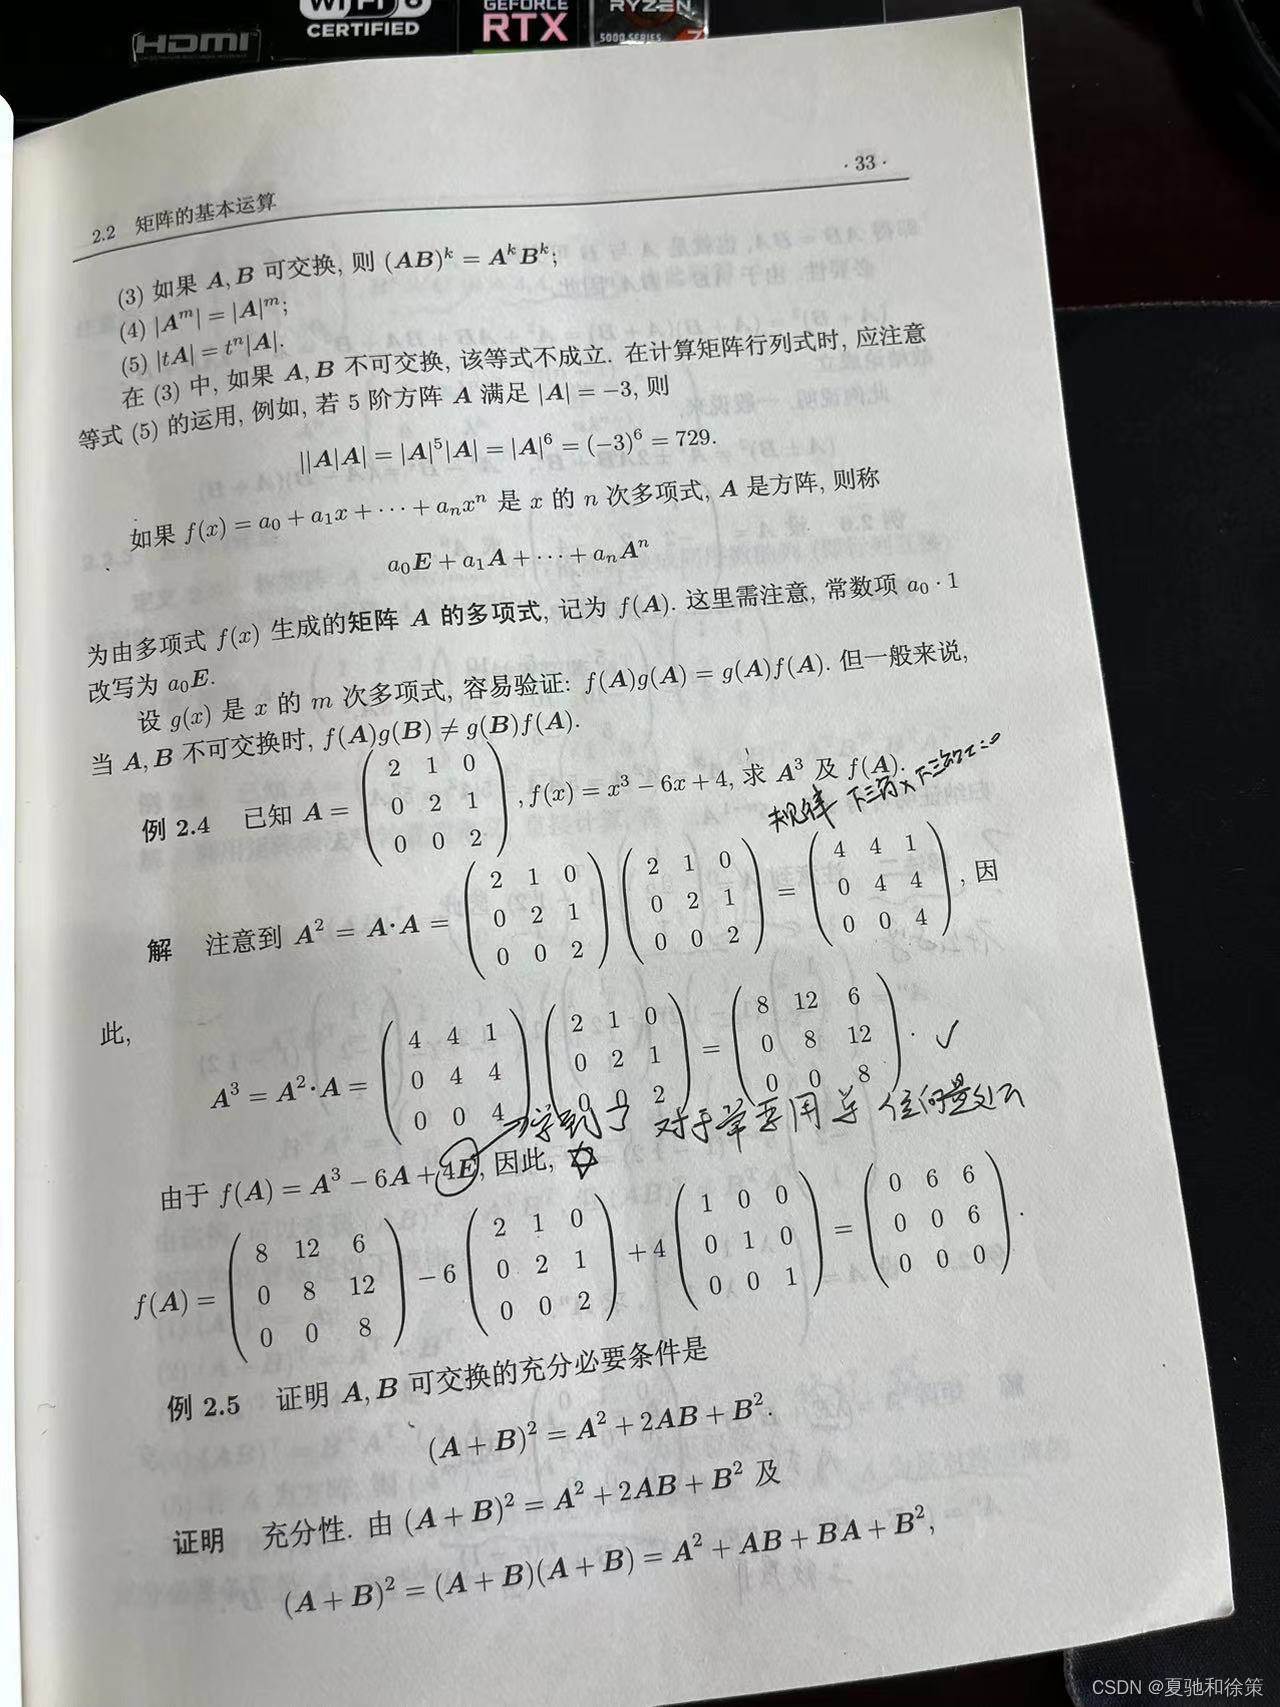 HDMI
WiFi 6
CERTIFIED
GEFORCE
RTX
RYZEN
5000 SERIES 7
2.2 矩阵的基本运算 · 33 ·
(3) 如果 A, B 可交换, 则 (AB)^k = A^k B^k;
(4) |A^m| = |A|^m;
(5) |tA| = t^n|A|.
在 (3) 中, 如果 A, B 不可交换, 该等式不成立. 在计算矩阵行列式时, 应注意
等式 (5) 的运用, 例如, 若 5 阶方阵 A 满足 |A| = −3, 则
||A|A| = |A|^5|A| = |A|^6 = (−3)^6 = 729.
如果 f(x) = a_0 + a_1x + ··· + a_nx^n 是 x 的 n 次多项式, A 是方阵, 则称
a_0E + a_1A + ··· + a_nA^n
为由多项式 f(x) 生成的矩阵 A 的多项式, 记为 f(A). 这里需注意, 常数项 a_0 · 1
改写为 a_0E.
设 g(x) 是 x 的 m 次多项式, 容易验证: f(A)g(A) = g(A)f(A). 但一般来说,
当 A, B 不可交换时, f(A)g(B) ≠ g(B)f(A).
例 2.4 已知 A = (2 1 0; 0 2 1; 0 0 2), f(x) = x^3 − 6x + 4, 求 A^3 及 f(A).
规律 下三角×下三角
解 注意到 A^2 = A·A = (2 1 0; 0 2 1; 0 0 2)(2 1 0; 0 2 1; 0 0 2) = (4 4 1; 0 4 4; 0 0 4), 因
此,
A^3 = A^2·A = (4 4 1; 0 4 4; 0 0 4)(2 1 0; 0 2 1; 0 0 2) = (8 12 6; 0 8 12; 0 0 8). ✓
学到了 对于常 要用单位向量处
由于 f(A) = A^3 − 6A + 4E, 因此,
f(A) = (8 12 6; 0 8 12; 0 0 8) − 6(2 1 0; 0 2 1; 0 0 2) + 4(1 0 0; 0 1 0; 0 0 1) = (0 6 6; 0 0 6; 0 0 0).
例 2.5 证明 A, B 可交换的充分必要条件是
(A + B)^2 = A^2 + 2AB + B^2.
证明 充分性. 由 (A + B)^2 = A^2 + 2AB + B^2 及
(A + B)^2 = (A + B)(A + B) = A^2 + AB + BA + B^2,
CSDN @夏驰和徐策